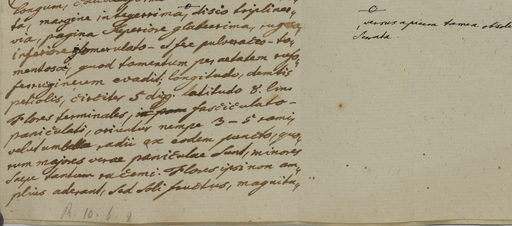 longum,
ta, margine integerrima, disco triplinerv-
via, pagina superiore glaberrima, rugosa
inferiore glomerulato- stre pulvereo-to-
mentosa, quod tomentum per aetatem rufo,
ferrugineum evadit; longitudo, demtis
petiolis, circiter 5 dig. latitudo 8. lin.
Flores terminales, fasciculato-
paniculati, oriuntur nempe 3-5 rami,
velut umbellae radii ex eodem puncto, quo-
rum majores verae paniculae sunt, minores
saepe tantum racemi. Flores ipsi non am-
plius aderant, sed soli fructus, magnitu-
R. 10. f. 9
versus apicem tamen obsolete
serrata